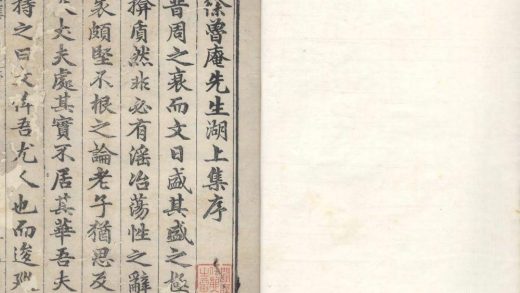 徐曾庵先生湖上集序
昔周之衰而文日盛其盛之極
揜质然非必有滛冶蕩性之辭
衰頗堅不根之論老子猶思反
大丈夫處其實不居其華吾夫
持之曰文莫吾尤人也而逡